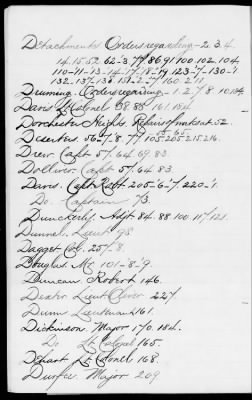 Detachments Orders regarding - 2. 3. 4.
14. 15. 52. 62-3. 77. 86. 91. 100. 102. 104.
110-11-13-14-17-18-19. 123-7-130-1.
132. 137-138. 160. 211.
Drumming. Orders regarding - 1. 2. 7. 8. 10. 184.
Davis Colonel 58. 83. 161. 184.
Dorchester Heights. Repairs of works at. 52.
55-65.
Deserters. 56-7-8. 77. 105. 205. 215. 216.
Drew Capt 57. 64. 69. 83.
Dolliver Capt 57. 64. 83.
Davis. Capt Robt 205-6-7. 220-1.
Do. Captain 73.
Dunckerly. Adjt 84. 88. 100. 117. 121.
Dunnel. Lieut 98.
Dagget Col. 257-8.
Douglas. Mr. 101-8-9.
Duncan Robert 146.
Dexter Lieut Oliver 227.
Dunn Lieutenant 161.
Dickinson. Major 170. 184.
Do Lt Colonel 165.
Dehart Lt Colonel 168.
Durfee Major 209